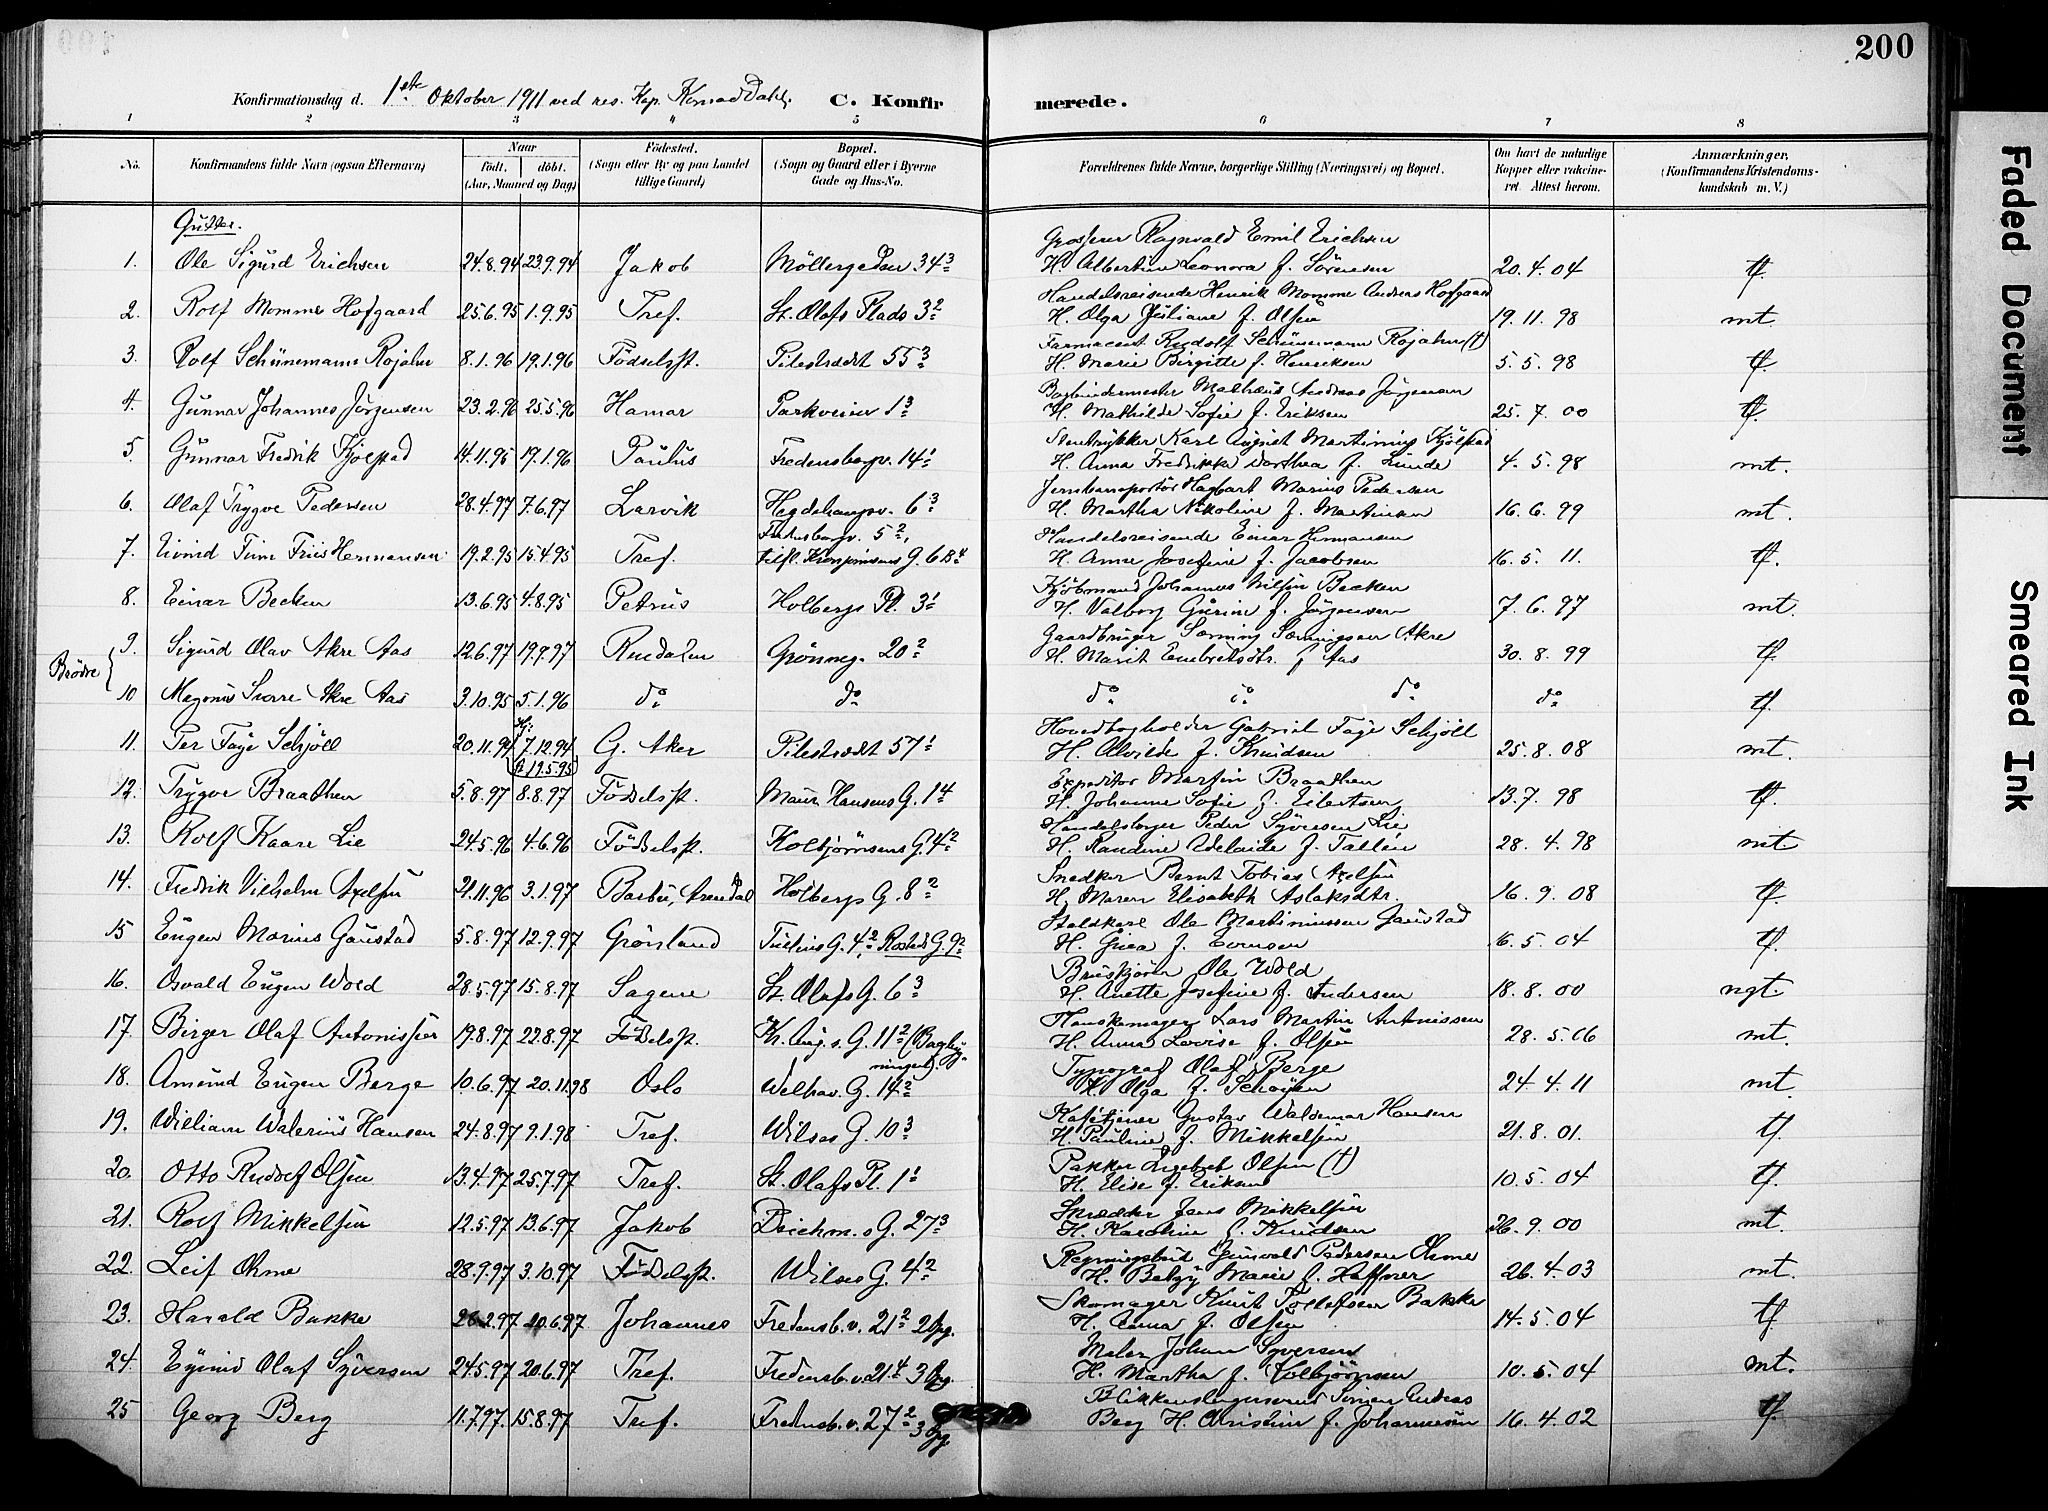 200
Konfirmationsdag d. 1ste Oktober 1911 ved res. Kap. Konrad Dahl. C. Konfirmerede.
1 2 3 4 5 6 7 8
No. Konfirmandens fulde Navn (ogsaa Efternavn) Naar født. døbt. (Aar, Maaned og Dag) Fødested. (Sogn eller By og paa Landet tillige Gaard) Bopæl. (Sogn og Gaard eller i Byerne Gade og Hus-No. Forældrenes fulde Navne, borgerlige Stilling (Næringsvei) og Bopæl. Om havt de naturlige Kopper eller vakcineret. Attest herom. Anmærkninger. (Konfirmandens Kristendomskundskab m. V.)
Gutter.
Grosserer Ragnvald Emil Erichsen
1. Ole Sigurd Erichsen 24.8.94 23.9.94 Jakob Möllergaden 34³ H. Albertine Leonora f. Sörensen 20.4.04 tf.
Handelsreisende Henrik Momme Andreas Hofgaard
2. Rolf Momme Hofgaard 25.6.95 1.9.95 Tref. St. Olafs Plads 3² H. Olga Juliane f. Olsen 19.11.98 mt
Farmaceut Rudolf Schünemann Rojahn (†)
3. Rolf Schünemann Rojahn 8.1.96 19.1.96 Födselsst. Pilestrædet 55³ H. Marie Birgitte f. Henriksen 5.5.98 tf.
Bogbindermester Mathæus Andreas Jörgensen
4. Gunnar Johannes Jörgensen 23.2.96 25.5.96 Hamar Parkveien 1³ H. Mathilde Sofie f. Eriksen 25.7.00 tf.
Stentrykker Karl August Martinius Kjölstad
5. Gunnar Fredrik Kjölstad 14.11.95 19.1.96 Paulus Fredensborgv. 14¹ H. Anna Fredrikke Dorthea f. Lunde 4.5.98 mt.
Jernbaneportör Hagbart Marius Pedersen
6. Olaf Trygve Pedersen 28.4.97 7.6.97 Larvik Hegdehaugsv. 6³ H. Martha Nikoline f. Martinsen 16.6.99 mt.
Fredensborgv. 5², Handelsreisende Einar Hermansen
7. Eivind Tim Friis Hermansen 19.2.95 15.4.95 Tref. G. 6B⁴ H. Anna Josefine f. Jacobsen 16.5.11. tf.
Kjöbmand Johannes Nilsen Becken
8. Einar Becken 13.6.95 4.8.95 Petrus Holbergs Pl. 3¹ H. Valborg Gurine f. Jörgensen 7.6.97 mt.
Gaardbruger Sörning Akre
9. Sigurd Olav Akre Aas 12.6.97 19.9.97 Rendalen Grönneg. 20² H. Marit Embretsdtr. f. Aas 30.8.99 tf.
Brödre {
10 Magnus Snorre Akre Aas 3.10.95 5.1.96 do do do do do do tf.
Hovedbogholder Gabriel Faye Schjöll
11. Per Faye Schjöll 20.11.94 Hj: 7.12.94 (st 19.5.95) G. Aker Pilestrædet 57¹ H. Alvilde f. Knudsen 25.8.08 mt.
Expeditör Martin Braathen
12. Trygve Braathen 5.8.97 8.8.97 Födselsst. Maur. Hansens G. 1⁴ H. Johanne Sofie f. Eilertsen 13.7.98 tf.
Handelsborger Peder Syversen Lie
13. Rolf Kaare Lie 24.5.96 4.6.96 Födselsst. Kolbjörnsens G. 4² H. Randine Adelaide f. Tallén 28.4.98 mt
Snedker Bernt Tobias Axelsen
14. Fredrik Vilhelm Axelsen 21.11.96 3.1.97 Barbu, Arendal Holbergs G. 8² H. Maren Elisabeth Aslaksdtr. 16.9.08 tf.
Staldkarl Ole Martiniussen Gaustad
15 Eugen Marius Gaustad 5.8.97 12.9.97 Grönland Tullins G. 4², Rosteds G. 9² H. Grea f. Evensen 16.5.04 tf.
Bruskjörer Ole Wold
16. Osvald Eugen Wold 28.5.97 15.8.97 Sagene St. Olafs G. 6³ H. Anette Josefine f. Andersen 18.8.00 ngt.
Hanskemager Lars Martin Antonissen
17. Birger Olaf Antonissen 19.8.97 22.8.97 Födselsst. Kr. Aug.s G. 11² (Bagbygningen). H. Anna Lovise f. Olsen 28.5.06 mt.
Typograf Olaf Berge
18. Amund Eugen Berge 10.6.97 20.11.98 Oslo Welhav. G. 14² H. Olga f. Schøyen 24.4.11 mt.
Kafétjener Gustav Waldemar Hansen
19. William Walerius Hansen 24.8.97 9.1.98 Tref. Wilses G. 10³ H. Pauline f. Mikkelsen 21.8.01. tf.
Pakker Engebret Olsen (†)
20. Otto Rudolf Olsen 13.4.97 25.7.97 Tref. St. Olafs Pl. 1¹ H. Elise f. Eriksen 10.5.04 tf.
Skrædder Jens Mikkelsen
21. Rolf Mikkelsen 12.5.97 13.6.97 Jakob Deichm.s G. 27³ H. Karoline f. Knudsen 26.9.00 mt.
Regningsbud Gunvald Pedersen Ohme
22. Leif Ohme 28.9.97 3.10.97 Födselsst. Wilses G. 4² H. Betzy Marie f. Haffner 26.4.03 mt.
Skomager Knut Tollefsen Bakke
23. Harald Bakke 26.2.97 20.6.97 Johannes Fredensb.v. 21² 2 Opg. H. Anna f. Olsen 14.5.04 tf.
Maler Johan Syversen
24. Eyvind Olaf Syversen 24.5.97 20.6.97 Tref. Fredensb.v. 21⁴ 3 Opg. H. Martha f. Kolbjörnsen 10.5.04 mt.
Blikkenslagersvend
25 Georg Berg 11.7.97 15.8.97 Tref. Fredensb.v. 27² 3 Opg. Berg H. Kristine f. Johannesen 16.4.02 tf.
Faded Document
Smeared Ink